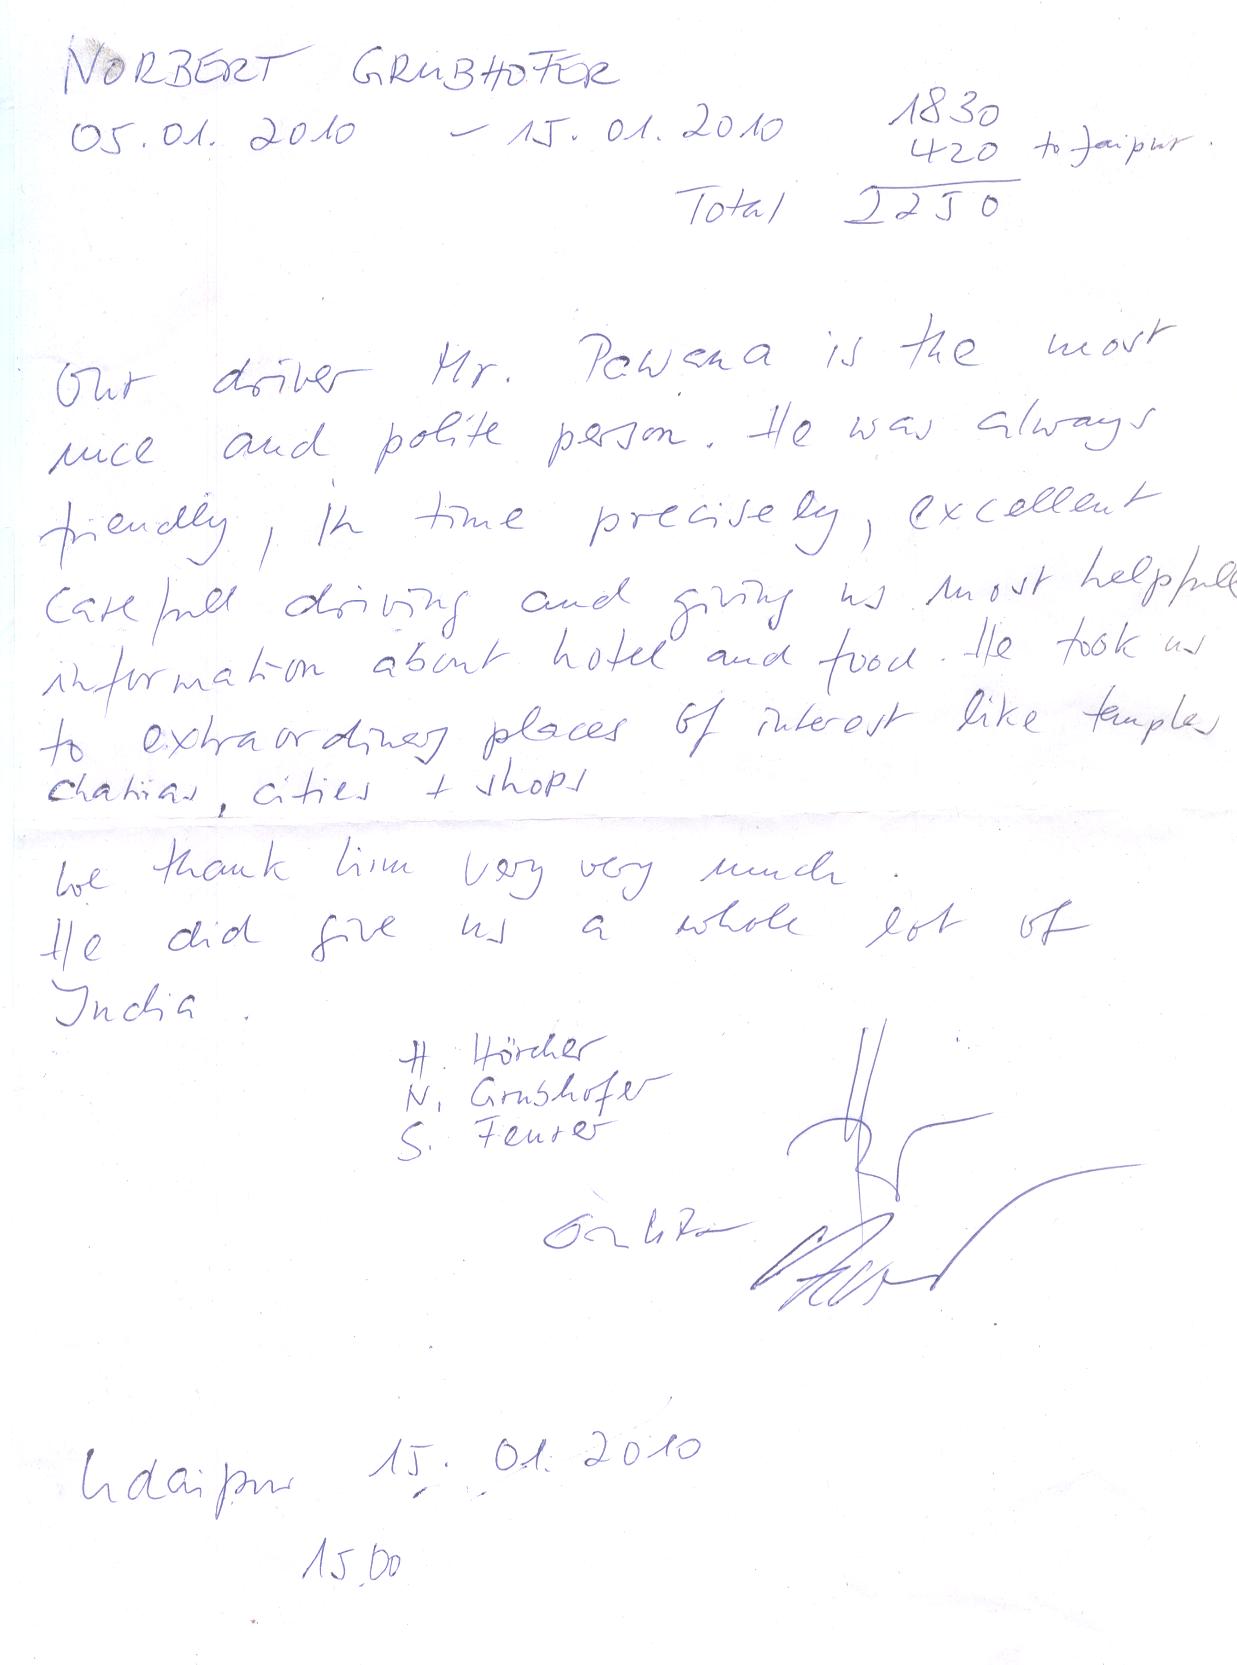 NORBERT GRUBHOFER
05.01. 2010 – 15. 01. 2010
1830
420 to Jaipur.
Total 2250
Our driver Mr. Pawana is the most
nice and polite person. He was always
friendly, in time precisely, excellent
carefull driving and giving us most helpfull
information about hotel and food. He took us
to extraordinary places of interest like temples
chatrias, cities + shops
We thank him very very much.
He did give us a whole lot of
India.
H. Hörcher
N. Grubhofer
S. Feurer
Udaipur 15. 01. 2010
15.00